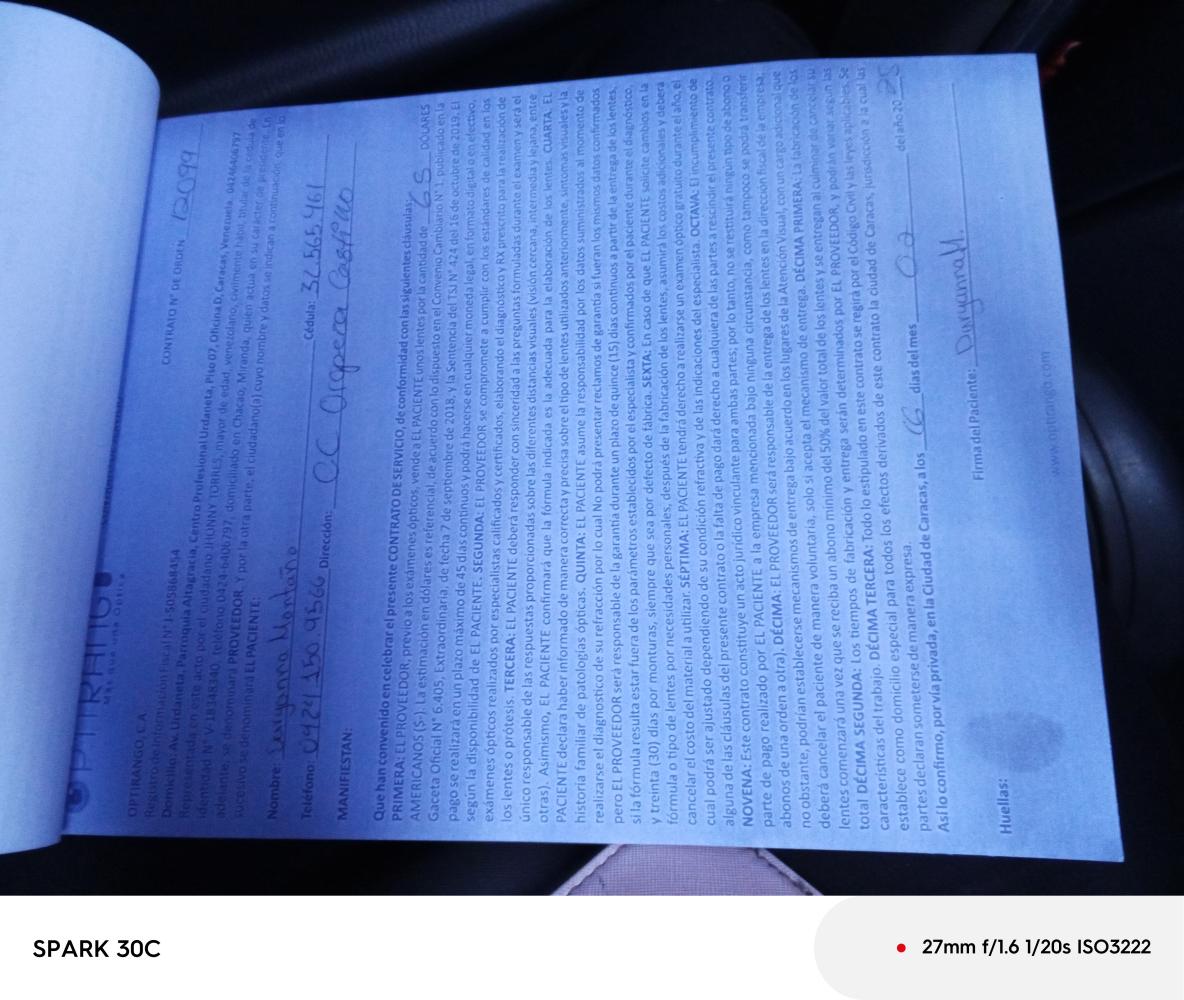 OPTIRANGO
Más que una Óptica
CONTRATO N° DE ORDEN 12099
OPTIRANGO, C.A
Registro de Información Fiscal N° J-505868454
Domicilio. Av. Urdaneta, Parroquia Altagracia, Centro Profesional Urdaneta, Piso 07, Oficina D, Caracas, Venezuela. 04246406797
Representada en este acto por el ciudadano JHONNY TORRES, mayor de edad, venezolano, civilmente hábil, titular de la cedula de
identidad N° V-18348340, telefono 0424-6406797, domiciliado en Chacao, Miranda, quien actua en su carácter de presidente. En
adelante, se denominará PROVEEDOR, Y por la otra parte, el ciudadano(a) cuyo nombre y datos se indican a continuación que en lo
sucesivo se denominará EL PACIENTE:
Nombre: Montaño Cédula: 32.565.461
Teléfono: 0424 150.9566 Dirección: CC
MANIFIESTAN:
Que han convenido en celebrar el presente CONTRATO DE SERVICIO, de conformidad con las siguientes cláusulas:
PRIMERA: EL PROVEEDOR, previo a los exámenes ópticos, vende a EL PACIENTE unos lentes por la cantidad de 65 DOLARES
AMERICANOS ($-). La estimación en dólares es referencial, de acuerdo con lo dispuesto en el Convenio Cambiario N° 1, publicado en la
Gaceta Oficial N° 6.405, Extraordinaria, de fecha 7 de septiembre de 2018, y la Sentencia del TSJ N° 424 del 16 de octubre de 2019. El
pago se realizará en un plazo máximo de 45 días continuos y podrá hacerse en cualquier moneda legal, en formato digital o en efectivo,
según la disponibilidad de EL PACIENTE. SEGUNDA: EL PROVEEDOR se compromete a cumplir con los estándares de calidad en los
exámenes ópticos realizados por especialistas calificados y certificados, elaborando el diagnóstico y RX prescrito para la realización de
los lentes o prótesis. TERCERA: EL PACIENTE deberá responder con sinceridad a las preguntas formuladas durante el examen y será el
único responsable de las respuestas proporcionadas sobre las diferentes distancias visuales (visión cercana, intermedia y lejana, entre
otras). Asimismo, EL PACIENTE confirmará que la fórmula indicada es la adecuada para la elaboración de los lentes. CUARTA. EL
PACIENTE declara haber informado de manera correcta y precisa sobre el tipo de lentes utilizados anteriormente, síntomas visuales y la
historia familiar de patologías ópticas. QUINTA: EL PACIENTE asume la responsabilidad por los datos suministrados al momento de
realizarse el diagnostico de su refracción por lo cual No podrá presentar reclamos de garantía si fueran los mismos datos confirmados
pero EL PROVEEDOR será responsable de la garantía durante un plazo de quince (15) días continuos a partir de la entrega de los lentes,
si la fórmula resulta estar fuera de los parámetros establecidos por el especialista y confirmados por el paciente durante el diagnóstico,
y treinta (30) días por monturas, siempre que sea por defecto de fábrica. SEXTA: En caso de que EL PACIENTE solicite cambios en la
fórmula o tipo de lentes por necesidades personales, después de la fabricación de los lentes, asumirá los costos adicionales y deberá
cancelar el costo del material a utilizar. SÉPTIMA: EL PACIENTE tendrá derecho a realizarse un examen óptico gratuito durante el año, el
cual podrá ser ajustado dependiendo de su condición refractiva y de las indicaciones del especialista. OCTAVA. El incumplimiento de
alguna de las cláusulas del presente contrato o la falta de pago dará derecho a cualquiera de las partes a rescindir el presente contrato.
NOVENA: Este contrato constituye un acto jurídico vinculante para ambas partes; por lo tanto, no se restituirá ningún tipo de abono o
parte de pago realizado por EL PACIENTE a la empresa mencionada bajo ninguna circunstancia, como tampoco se podrá transferir
abonos de una orden a otra). DÉCIMA: EL PROVEEDOR será responsable de la entrega de los lentes en la dirección fiscal de la empresa;
no obstante, podrían establecerse mecanismos de entrega bajo acuerdo en los lugares de la Atención Visual, con un cargo adicional que
deberá cancelar el paciente de manera voluntaria, solo si acepta el mecanismo de entrega. DÉCIMA PRIMERA: La fabricación de los
lentes comenzará una vez que se reciba un abono mínimo del 50% del valor total de los lentes y se entregan al culminar de cancelar su
total DÉCIMA SEGUNDA: Los tiempos de fabricación y entrega serán determinados por EL PROVEEDOR, y podrán variar según las
características del trabajo. DÉCIMA TERCERA: Todo lo estipulado en este contrato se regirá por el Código Civil y las leyes aplicables. Se
establece como domicilio especial para todos los efectos derivados de este contrato la ciudad de Caracas, jurisdicción a la cual las
partes declaran someterse de manera expresa.
Así lo confirmo, por vía privada, en la Ciudad de Caracas, a los 16 días del mes 02 del año 20 25
Firma del Paciente:
Huellas:
www.optirango.com
SPARK 30C
27mm f/1.6 1/20s ISO3222